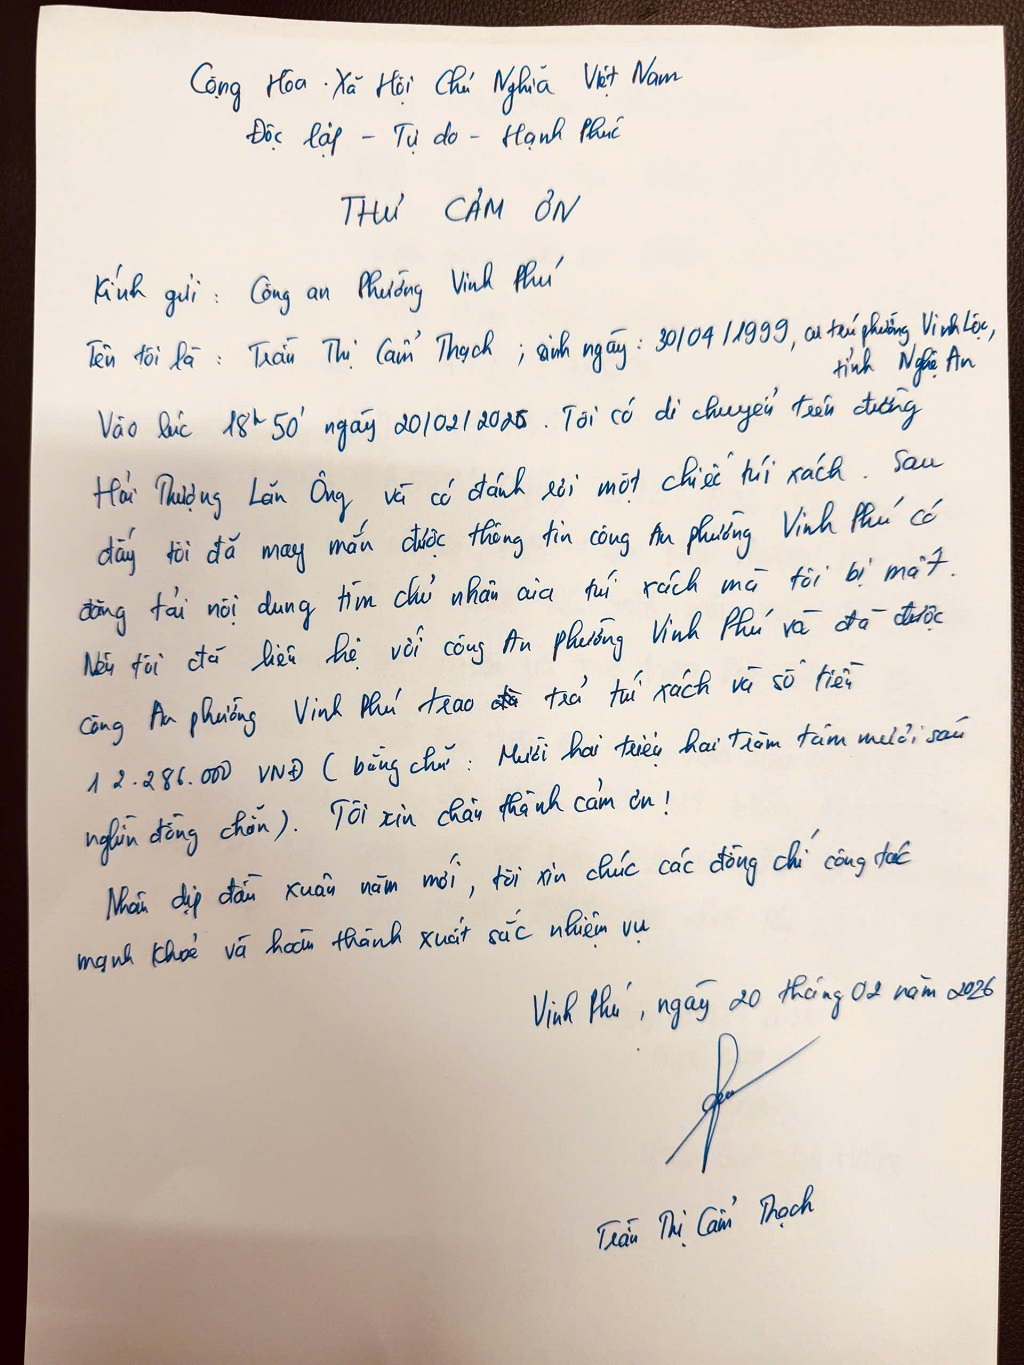 Cộng Hòa Xã Hội Chủ Nghĩa Việt Nam
Độc lập - Tự do - Hạnh Phúc
THƯ CẢM ƠN
Kính gửi : Công an Phường Vinh Phú
Tên tôi là : Trần Thị Cẩm Thạch ; sinh ngày : 30/04/1999, cư trú phường Vinh Lộc,
tỉnh Nghệ An
Vào lúc 18h50' ngày 20/02/2026. Tôi có di chuyển trên đường
Hải Thượng Lãn Ông và có đánh rơi một chiếc túi xách. Sau
đấy tôi đã may mắn được thông tin công An phường Vinh Phú có
đăng tải nội dung tìm chủ nhân của túi xách mà tôi bị mất.
Nên tôi đã liên hệ với công An phường Vinh Phú và đã được
công An phường Vinh Phú trao trả túi xách và số tiền
12.286.000 VNĐ ( bằng chữ : Mười hai triệu hai trăm tám mươi sáu
nghìn đồng chẵn). Tôi xin chân thành cảm ơn!
Nhân dịp đầu xuân năm mới, tôi xin chúc các đồng chí công tác
mạnh khoẻ và hoàn thành xuất sắc nhiệm vụ
Vinh Phú, ngày 20 tháng 02 năm 2026
Trần Thị Cẩm Thạch